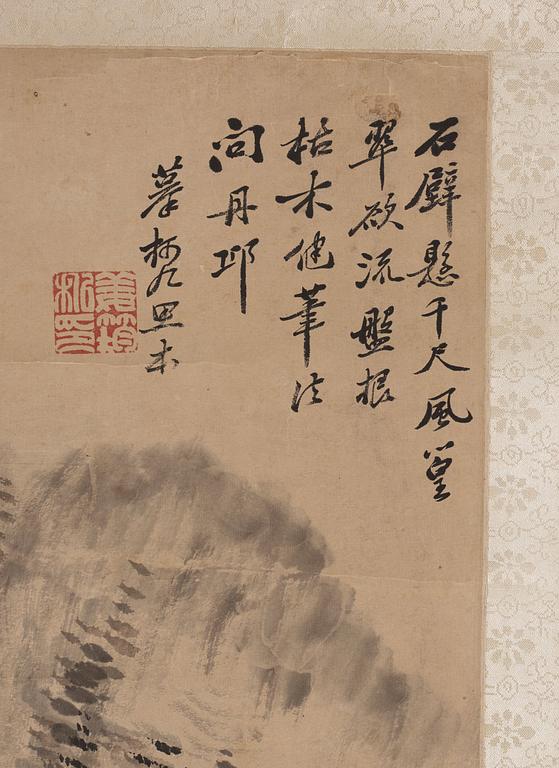 石壁懸千尺風篁
翠欲流盤根
枯木健筆法
問丹邱
摹柯九思本